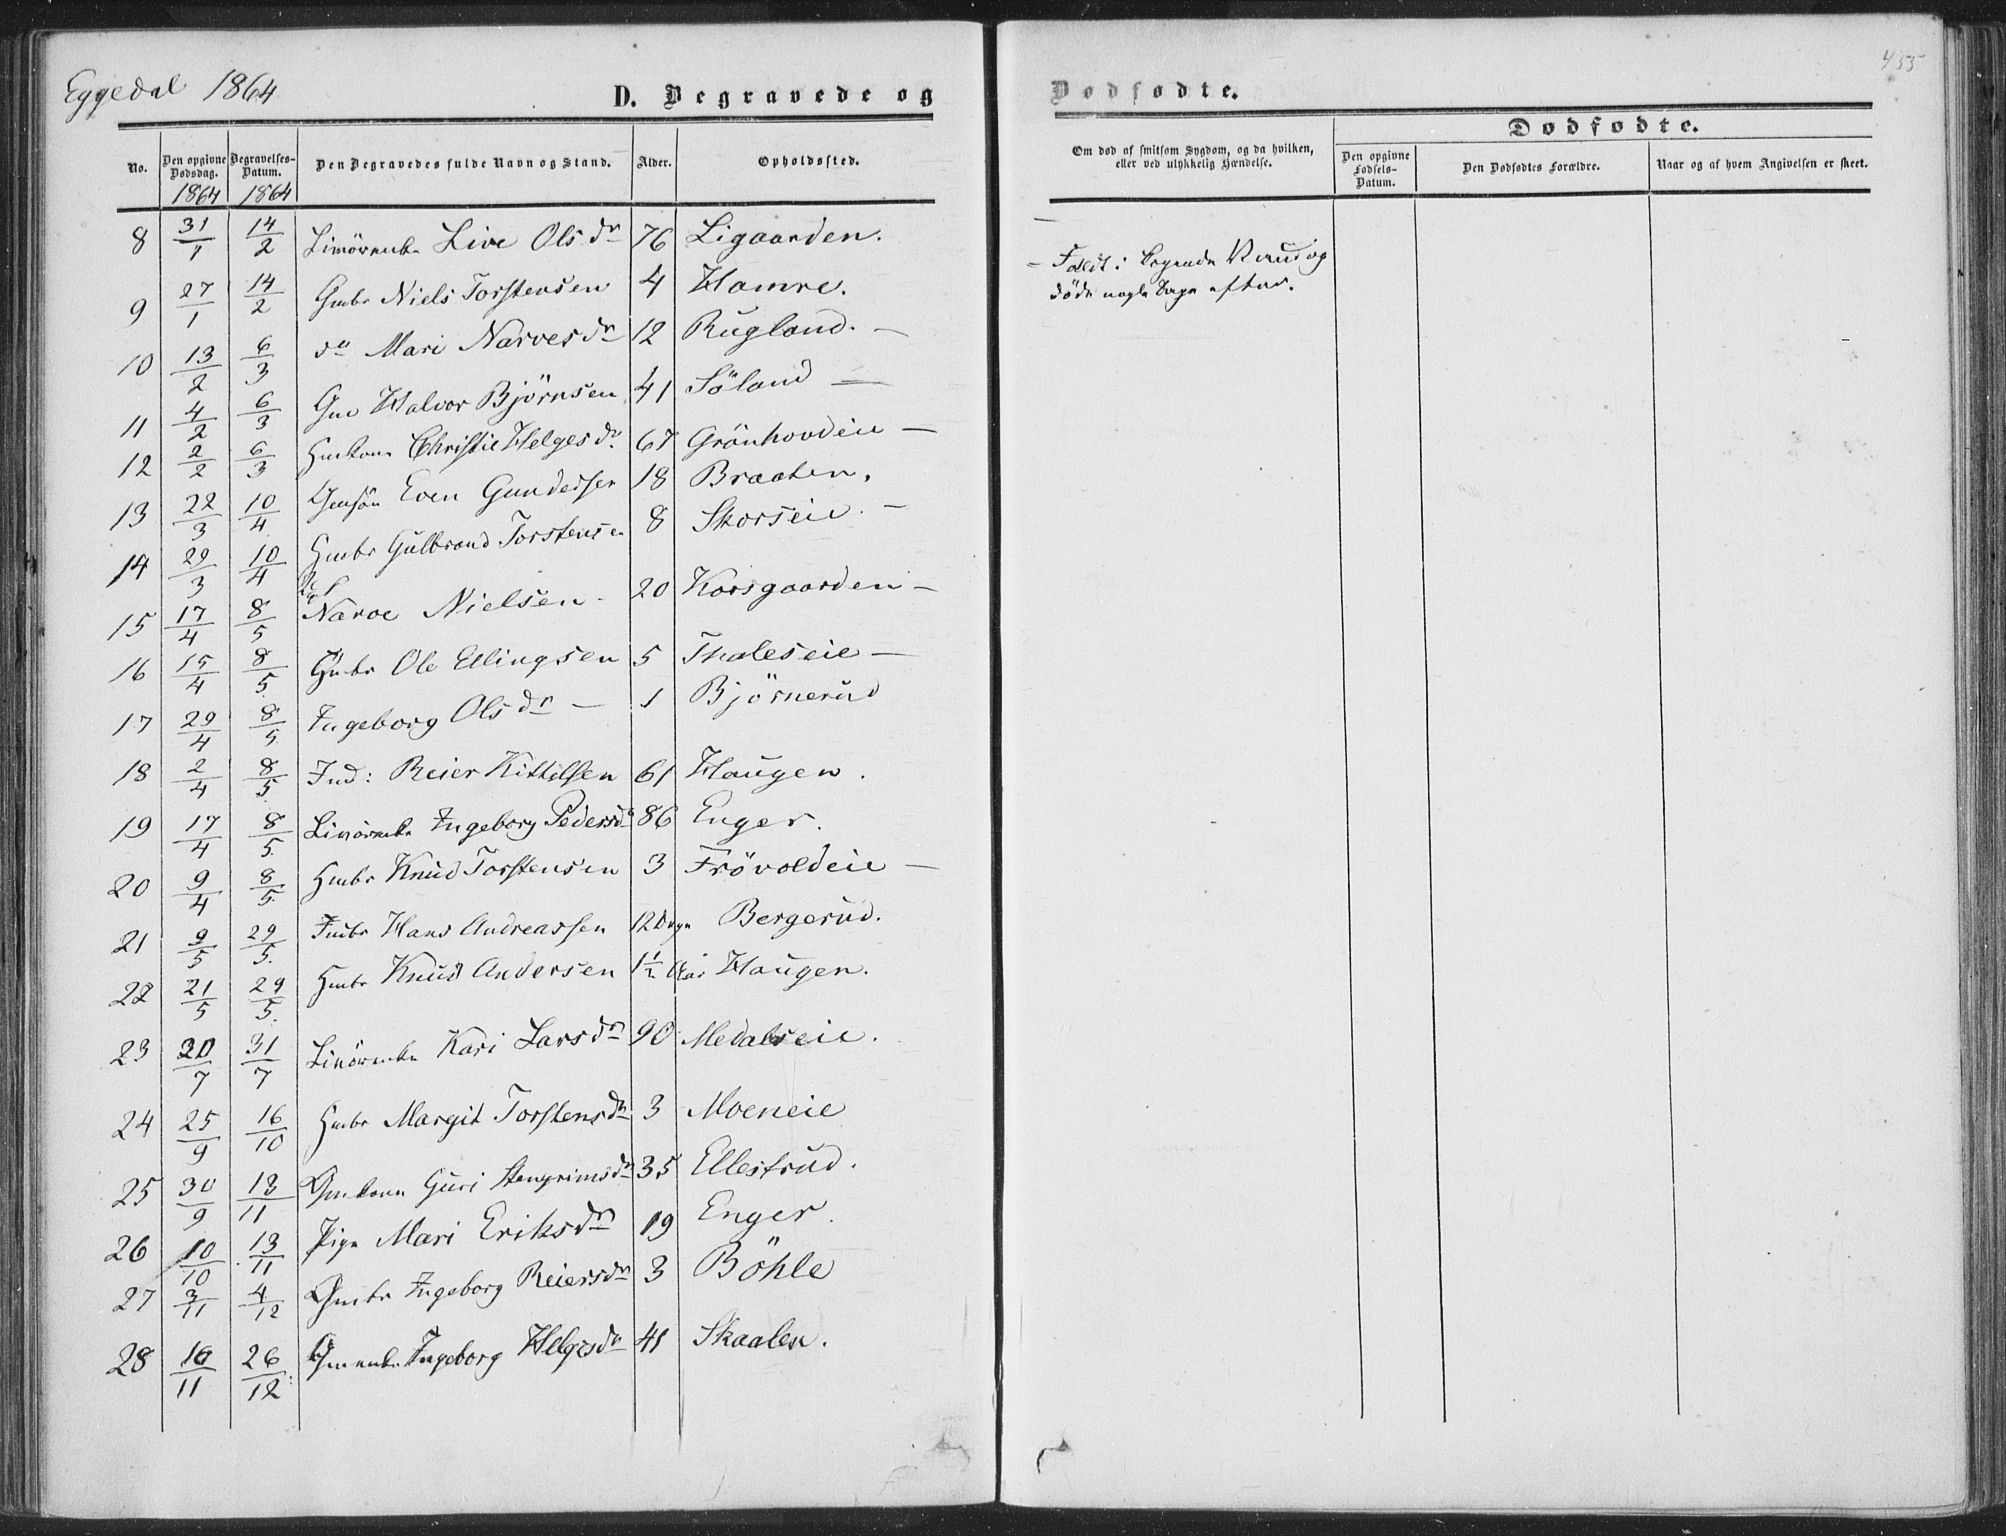 Eggedal 1864
455
D. Begravede og
Dødfødte.
No.
Den opgivne Dødsdag.
1864
Begravelses-Datum.
1864
Den Begravedes fulde Navn og Stand.
Alder.
Opholdssted.
Om død af smitsom Sygdom, og da hvilken, eller ved ulykkelig Hændelse.
Dødfødte.
Den opgivne Fødsels-Datum.
Den Dødfødtes Forældre.
Naar og af hvem Angivelsen er skeet.
8 31/1 14/2 Live Olsdr 76 Ligaarden.
9 27/1 14/2 Gmbr Niels Torstensen 4 Hamre. Faldt i kogende Vand og døde nogle Dage efter.
10 13/2 6/3 do Mari Narvesdr 12 Rugland. —
11 4/2 6/3 Gm Halvor Björnsen 41 Söland —
12 2/2 6/3 Hmkone Christie Helgesdr 67 Grönhovdeie —
13 22/3 10/4 Gmsön Even Gundersen 18 Braaten.
14 29/3 10/4 Hmbr Gulbrand Torstensen 8 Skorseie. —
15 17/4 8/5 Narve Nielsen. 20 Korsgaarden —
16 15/4 8/5 Hmbr Ole Ellingsen 5 Thaleseie —
17 29/4 8/5 Ingeborg Olsdr — 1 Björnerud
18 2/4 8/5 Ind: Reier Kittilsen 61 Haugen.
19 17/4 8/5 Ingeborg Pedersdr 86 Enger.
20 9/4 8/5 Hmbr Knud Torstensen 3 Frövoldeie —
21 9/5 29/5 Inbr Hans Andreassen 12 Dage Bergerud.
22 21/5 29/5 Hmbr Knud Andersen 1 1/2 Aar Haugen.
23 20/7 31/7 Kari Larsdr 90 Medalseie.
24 25/9 16/10 Hmbr Margit Torstensdr 3 Moeneie
25 30/9 13/11 Gmkone Guri Stengrimsdr 35 Ellestrud.
26 10/10 13/11 Pige Mari Eriksdr 19 Enger.
27 3/11 4/12 Gmbr Ingeborg Reiersdr 3 Böhle
28 10/11 26/12 Gmenke Ingeborg Helgesdr 41 Skaalen.